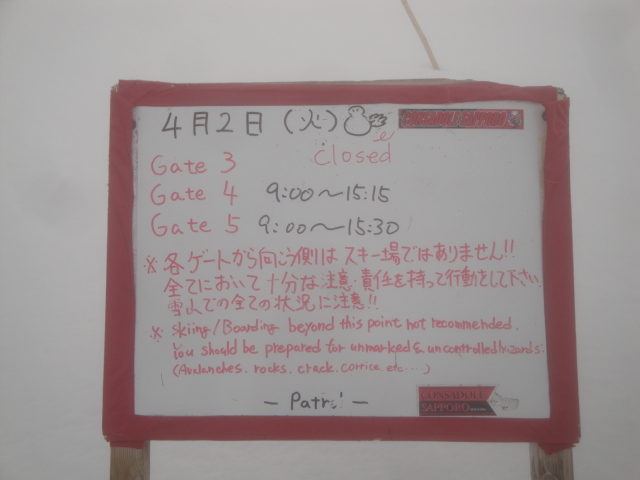 4月2日 (火)
Gate 3 closed
Gate 4 9:00〜15:15
Gate 5 9:00〜15:30
※各ゲートから向こう側はスキー場ではありません!!
全てにおいて十分な注意・責任を持って行動をして下さい
雪山での全ての状況に注意!!
※ Skiing/Boarding beyond this point not recommended.
You should be prepared for unmarked & uncontrolled
(Avalanches. rocks. crack. cornice etc....)
CONSADOLE
SAPPORO